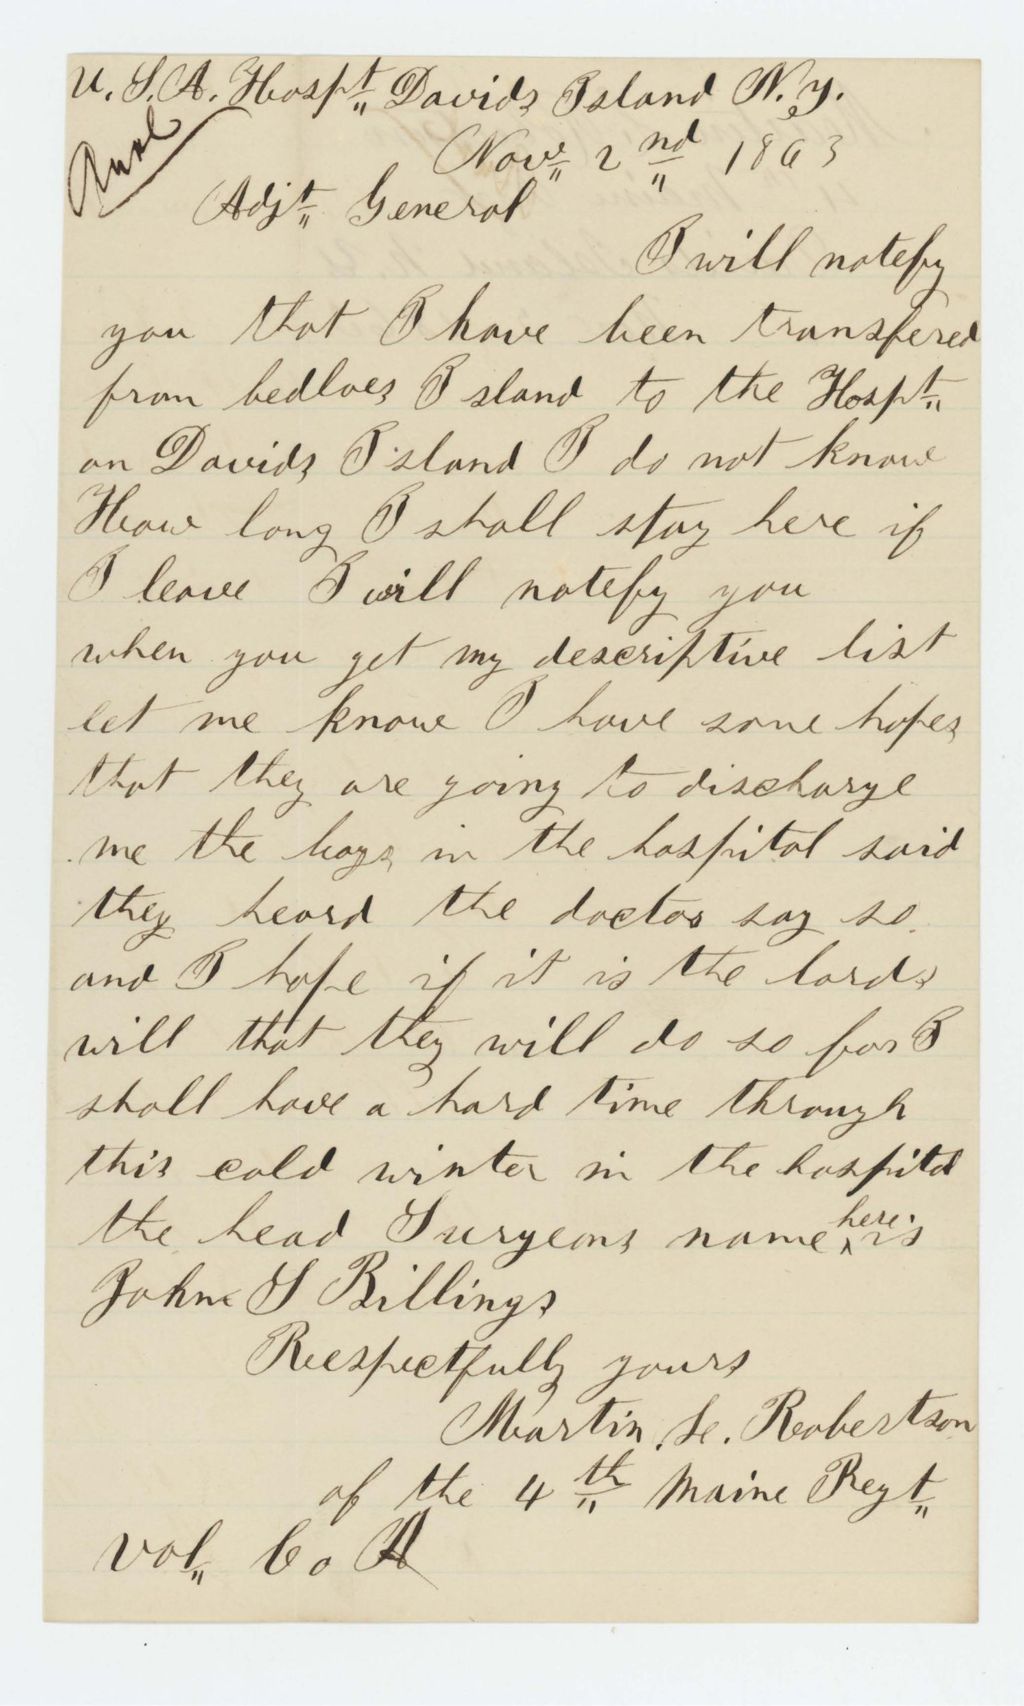 U. S. A. Hospt. Davids Island N. y.
Nove 2nd 1863
Adjt. General
I will notefy
you that I have been transfered
from bedloes Island to the Hospt.
on Davids Island I do not know
How long I shall stay here if
I leave I will notefy you
when you get my descriptive list
let me know I have some hopes
that they are going to discharge
me the boys in the hospital said
they heard the doctor say so.
and I hope if it is the lords
will that they will do so for I
shall have a hard time through
this cold winter in the hospital
the head Surgeons name here is
John S Billings
Respectfully yours
Martin. Robertson
of the 4th Maine Regt.
vol. Co A